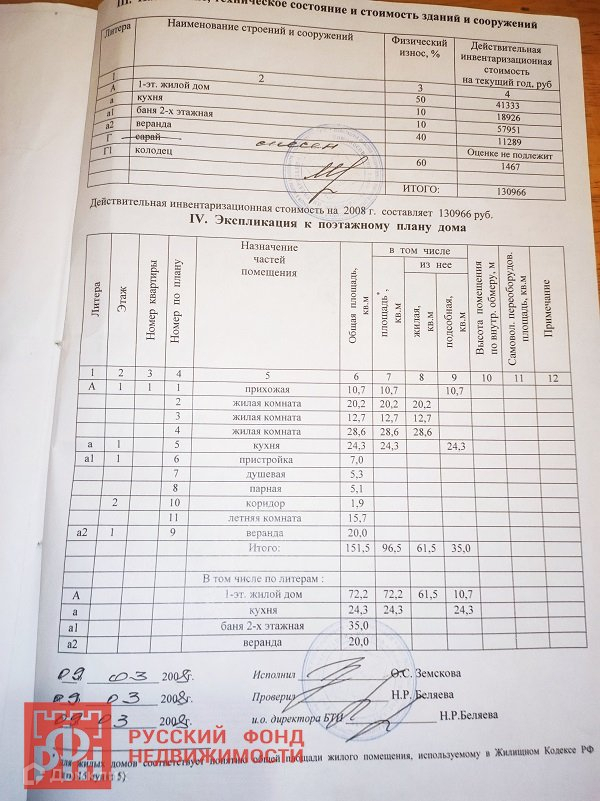 техническое состояние и стоимость зданий и сооружений
Литера | Наименование строений и сооружений | Физический износ, % | Действительная инвентаризационная стоимость на текущий год, руб
1 | 2 | 3 | 4
А | 1-эт. жилой дом | 50 | 41333
а | кухня | 10 | 18926
а1 | баня 2-х этажная | 10 | 57951
а2 | веранда | 40 | 11289
Г | сарай | снесен | Оценке не подлежит
Г1 | колодец | 60 | 1467
ИТОГО: | 130966
Действительная инвентаризационная стоимость на 2008 г. составляет 130966 руб.
IV. Экспликация к поэтажному плану дома
Литера | Этаж | Номер квартиры | Номер по плану | Назначение частей помещения | Общая площадь, кв.м | в том числе | площадь*, кв.м | из нее | жилая, кв.м | подсобная, кв.м | Высота помещения по внутр. обмеру, м | Самовол. переоборудов. площадь, кв.м | Примечание
1 | 2 | 3 | 4 | 5 | 6 | 7 | 8 | 9 | 10 | 11 | 12
А | 1 | 1 | 1 | прихожая | 10,7 | 10,7 | 10,7
2 | жилая комната | 20,2 | 20,2 | 20,2
3 | жилая комната | 12,7 | 12,7 | 12,7
4 | жилая комната | 28,6 | 28,6 | 28,6
а | 1 | 5 | кухня | 24,3 | 24,3 | 24,3
а1 | 1 | 6 | пристройка | 7,0
7 | душевая | 5,3
8 | парная | 5,1
2 | 10 | коридор | 1,9
11 | летняя комната | 15,7
а2 | 1 | 9 | веранда | 20,0
Итого: | 151,5 | 96,5 | 61,5 | 35,0
В том числе по литерам :
А | 1-эт. жилой дом | 72,2 | 72,2 | 61,5 | 10,7
а | кухня | 24,3 | 24,3 | 24,3
а1 | баня 2-х этажная | 35,0
а2 | веранда | 20,0
09 03 2008г. Исполнил О.С. Земскова
09 03 2008г. Проверил Н.Р. Беляева
09 03 2008г. и.о. директора БТИ Н.Р.Беляева
РУССКИЙ ФОНД
НЕДВИЖИМОСТИ
для жилых домов соответствует понятию общей площади жилого помещения, используемому в Жилищном Кодексе РФ